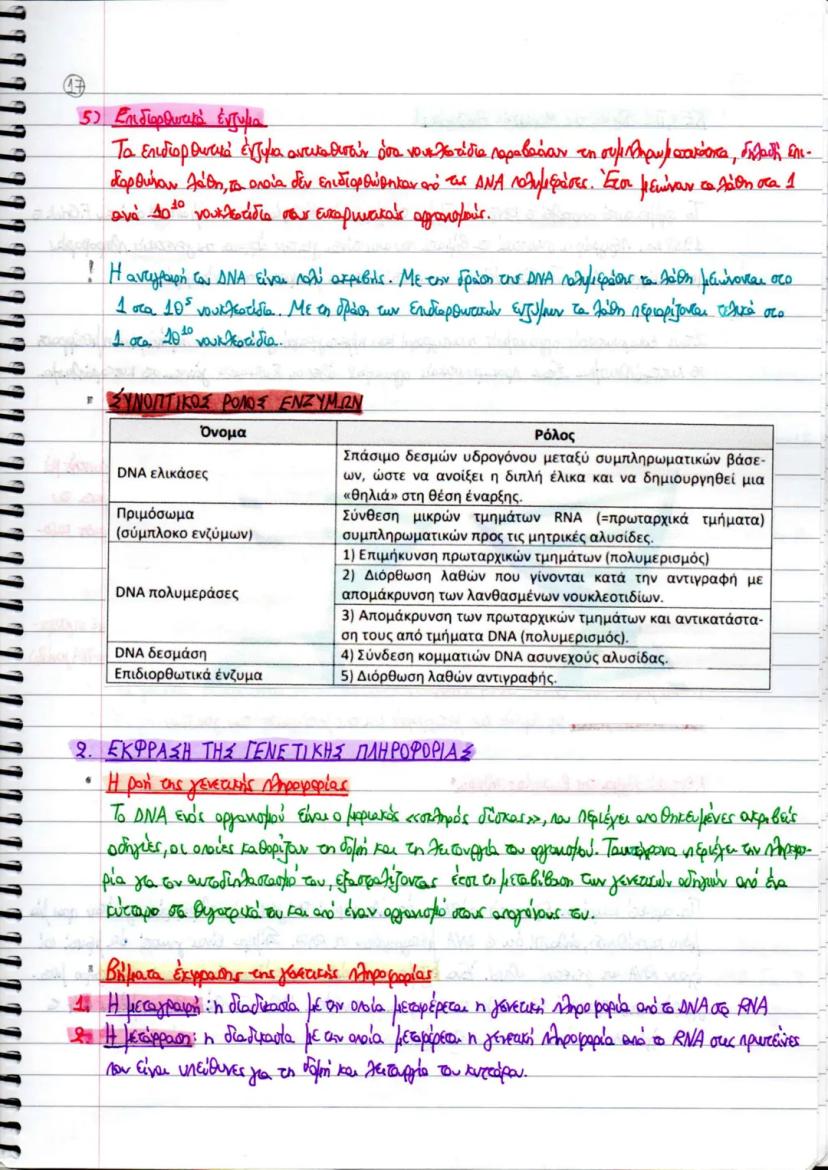 17
5) Επιδιορθωτικά ένζυμα
Τα επιδιορθωτικά ένζυμα αντικαθιστούν όσα νουκλεοτίδια παραβιάζουν τη συμπληρωματικότητα, δηλαδή επι-
διορθώνουν λάθη, τα οποία δεν επιδιορθώθηκαν από τις DNA πολυμεράσες. Έτσι μειώνουν τα λάθη στα 1
ανά 10¹⁰ νουκλεοτίδια στους ευκαρυωτικούς οργανισμούς.
! Η αντιγραφή του DNA είναι πολύ ακριβής. Με την δράση της DNA πολυμεράσης τα λάθη μειώνονται στο
1 στα 10⁵ νουκλεοτίδια. Με τη δράση των επιδιορθωτικών ενζύμων τα λάθη περιορίζονται τελικά στο
1 στα 10¹⁰ νουκλεοτίδια.
ΣΥΝΟΠΤΙΚΟΣ ΡΟΛΟΣ ΕΝΖΥΜΩΝ
Όνομα Ρόλος
DNA ελικάσες
Σπάσιμο δεσμών υδρογόνου μεταξύ συμπληρωματικών βάσε-
ων, ώστε να ανοίξει η διπλή έλικα και να δημιουργηθεί μια
«θηλιά» στη θέση έναρξης.
Πριμόσωμα
(σύμπλοκο ενζύμων)
Σύνθεση μικρών τμημάτων RNA (=πρωταρχικά τμήματα)
συμπληρωματικών προς τις μητρικές αλυσίδες.
DNA πολυμεράσες
1) Επιμήκυνση πρωταρχικών τμημάτων (πολυμερισμός)
2) Διόρθωση λαθών που γίνονται κατά την αντιγραφή με
απομάκρυνση των λανθασμένων νουκλεοτιδίων.
3) Απομάκρυνση των πρωταρχικών τμημάτων και αντικατάστα-
ση τους από τμήματα DNA (πολυμερισμός).
DNA δεσμάση 4) Σύνδεση κομματιών DNA ασυνεχούς αλυσίδας.
Επιδιορθωτικά ένζυμα 5) Διόρθωση λαθών αντιγραφής.
2. ΕΚΦΡΑΣΗ ΤΗΣ ΓΕΝΕΤΙΚΗΣ ΠΛΗΡΟΦΟΡΙΑΣ
• Η ροή της γενετικής πληροφορίας
Το DNA ενός οργανισμού είναι ο μοριακός «σκληρός δίσκος», που περιέχει αποθηκευμένες ακριβείς
οδηγίες, οι οποίες καθορίζουν τη δομή και τη λειτουργία του οργανισμού. Ταυτόχρονα περιέχει την πληροφο-
ρία για τον αυτοδιπλασιασμό του, εξασφαλίζοντας έτσι τη μεταβίβαση των γενετικών οδηγιών από ένα
κύτταρο στα θυγατρικά του και από έναν οργανισμό στους απογόνους του.
Βήματα έκφρασης της γενετικής πληροφορίας
1. Η μεταγραφή: η διαδικασία με την οποία μεταφέρεται η γενετική πληροφορία από το DNA στο RNA
2. Η μετάφραση: η διαδικασία με την οποία μεταφέρεται η γενετική πληροφορία από το RNA στις πρωτεΐνες
που είναι υπεύθυνες για τη δομή και λειτουργία του κυττάρου.